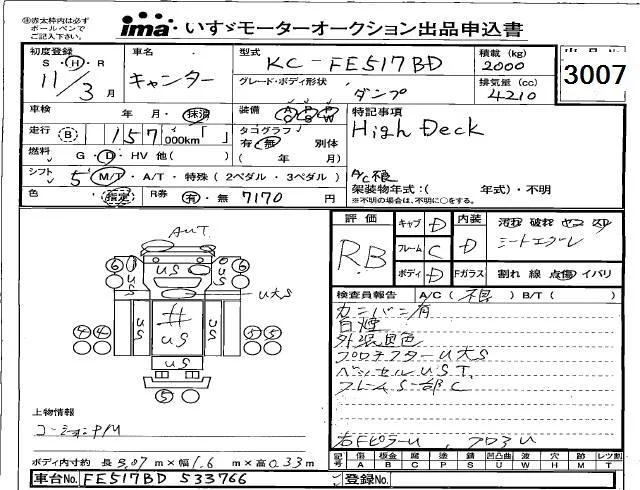 ※赤太枠内は必ず
ボールペンで
ご記入下さい。
ima いすゞモーターオークション出品申込書
初度登録 S・H・R 11/3月
車名 キャンター
型式 KC-FE517BD
積載 (kg) 2000
グレード・ボディ形状 ダンプ
排気量 (cc) 4210
3007
車検 年 月・抹消
装備
特記事項
High Deck
走行 B 157 000km「 」
タコグラフ 有・無 別体 ( 年 月)
燃料 G・D・HV 他( )
シフト 5 M/T・A/T・特殊(2ペダル・3ペダル)
架装物年式:( 年式)・不明
※不明の場合は、不明に○をする。
色 指定 R券 有・無 7170 円
評価 RB
キャブ D
フレーム C
ボディ D
内装 D
シートエグレ
Fガラス 割れ 線 点傷 イバリ
AUT
6 US 6
US
US
US
U大S
4 4 US 5 5
US
5
検査員報告 A/C( ) B/T( )
カンバン有
白煙
プロテクターU大S
ベッセルUST.
フレームS一部C
右FピラーU、フロアU
上物情報
コーションP/M
ボディ内寸約 長 3.07 m×幅 1.6 m×高 0.33 m
記号 傷 A 板金 B 腐 C 塗 P 錆 S 凹凸曲 U 波 W 穴 H 跡 M レツ割 T
車台No. FE517BD 533766
登録No.